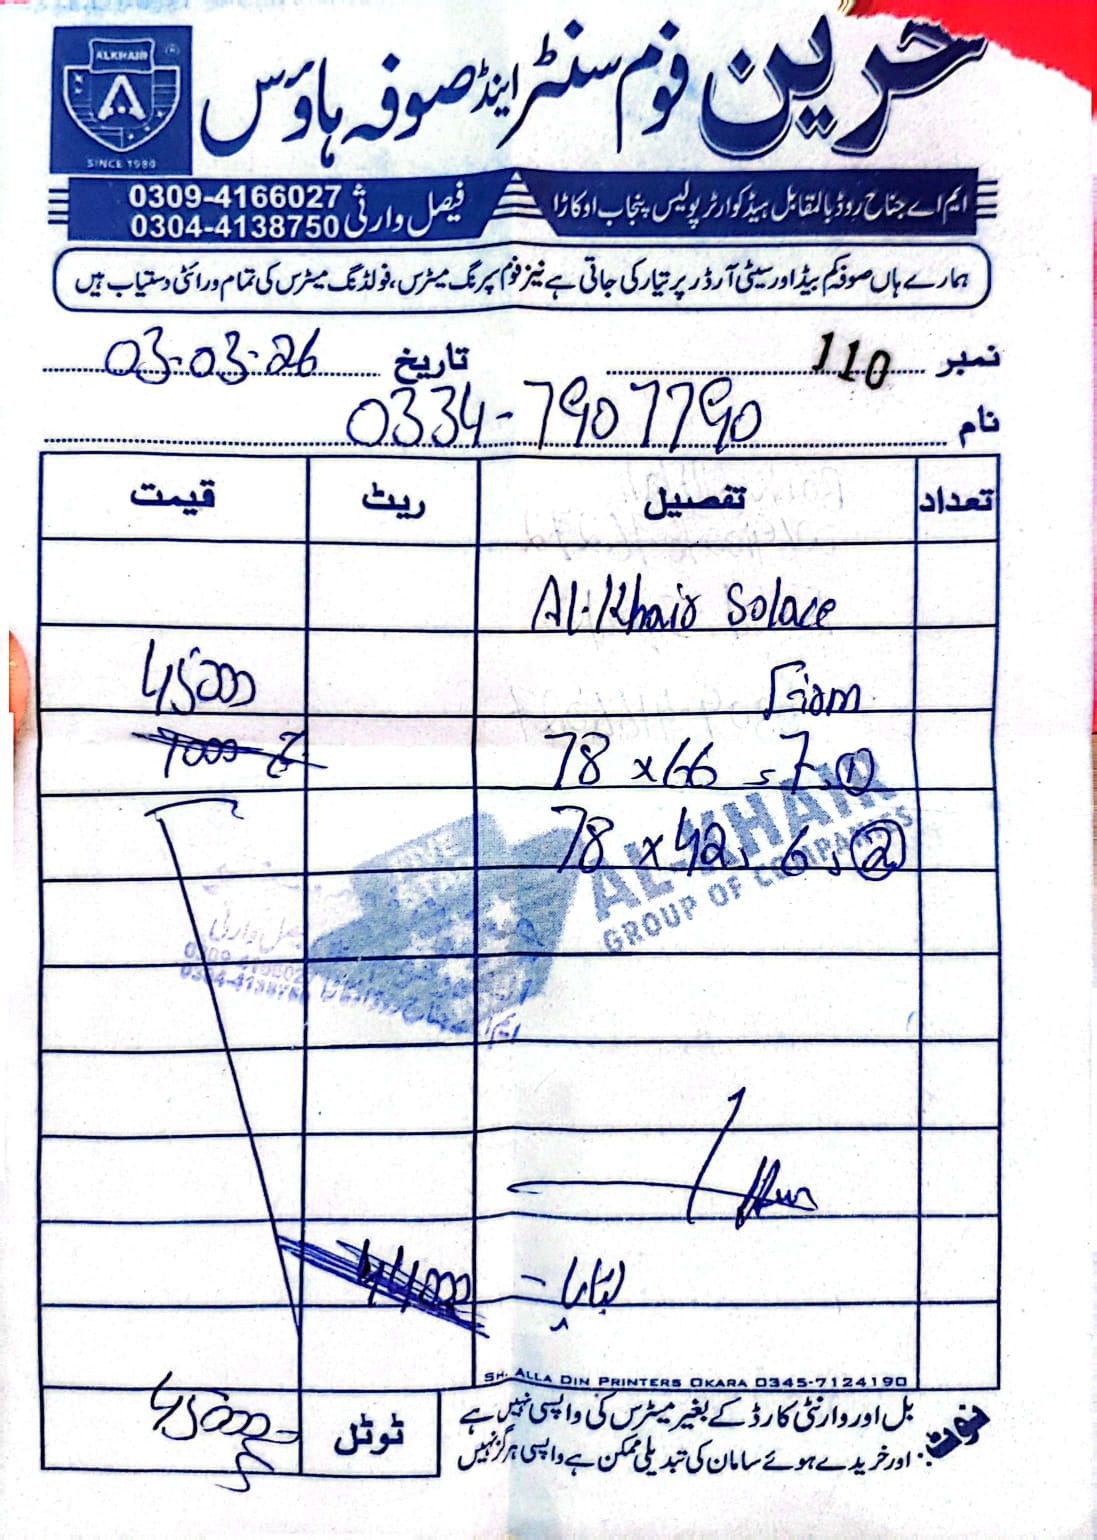 ALKHAIR
SINCE 1980
حرین فوم سنٹر اینڈ صوفہ ہاؤس
ایم اے جناح روڈ بالمقابل ہیڈ کوارٹر پولیس پنجاب اوکاڑا
فیصل وارثی
0309-4166027
0304-4138750
ہمارے ہاں صوفہ کم بیڈ اور سیٹی آرڈر پر تیار کی جاتی ہے نیز فوم سپرنگ میٹرس، فولڈنگ میٹرس کی تمام ورائٹی دستیاب ہیں
نمبر 110 تاریخ 03-03-26
نام 0334-7907790
تعداد تفصیل ریٹ قیمت
Al-Khair Solace
Foam 45000
78 x 66 , 7 , 1
78 x 42 , 6 , 2
AL-KHAIR
GROUP OF COMPANIES
بقایا - 44000
SH. ALLA DIN PRINTERS OKARA 0345-7124190
ٹوٹل 45000
نوٹ: بل اور وارنٹی کارڈ کے بغیر میٹرس کی واپسی نہیں ہے
اور خریدے ہوئے سامان کی تبدیلی ممکن ہے واپسی ہرگز نہیں